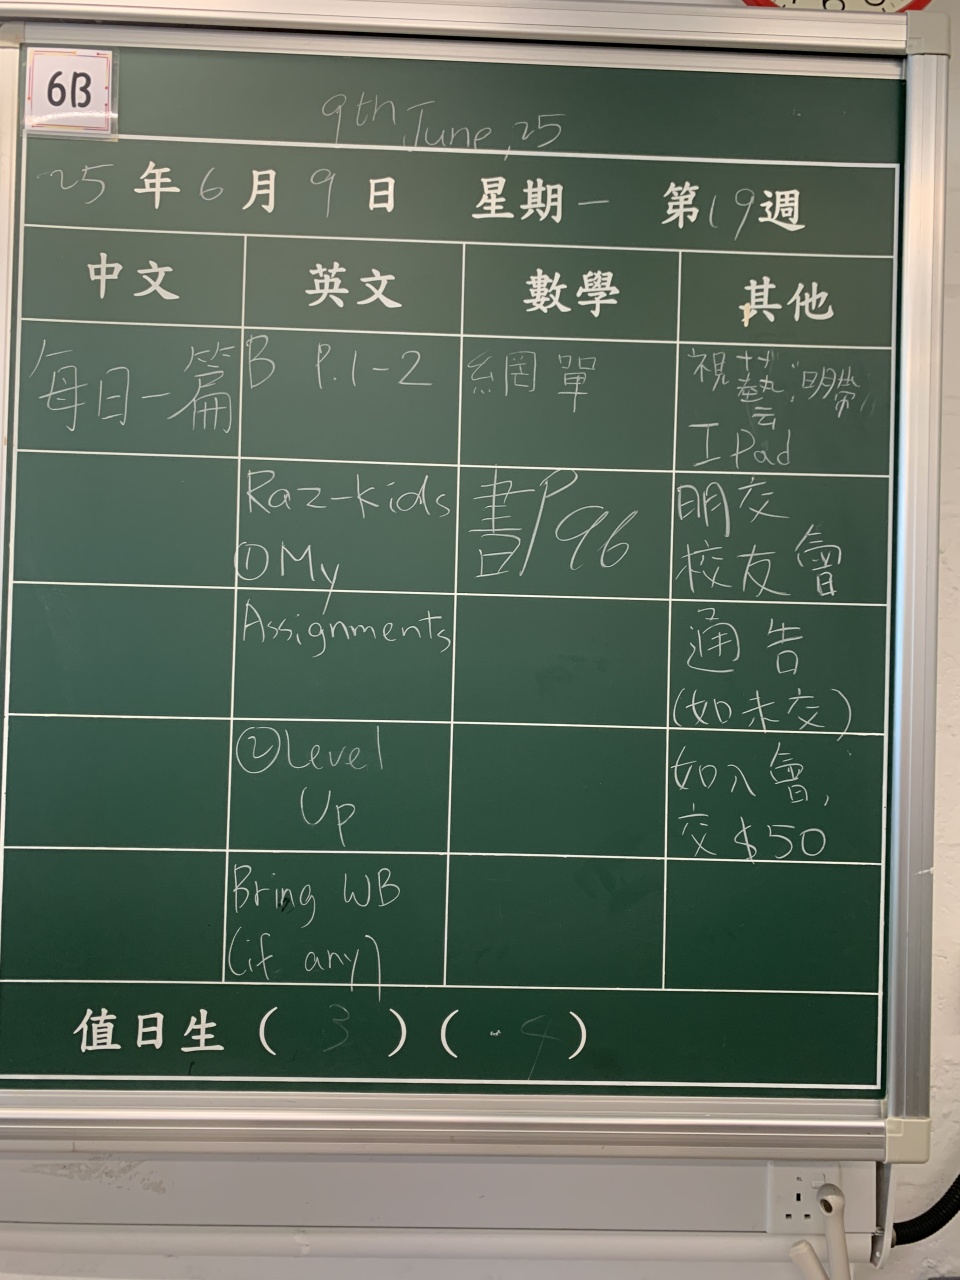 6B
9th June, 25
25年6月9日 星期一 第19週
中文 英文 數學 其他
每日一篇
B P.1-2
Raz-kids
①My
Assignments
②Level
Up
Bring WB
(if any)
網單
書P96
視藝:明帶
IPad
明交
校友會
通告
(如未交)
如入會,
交$50
值日生(3)(4)